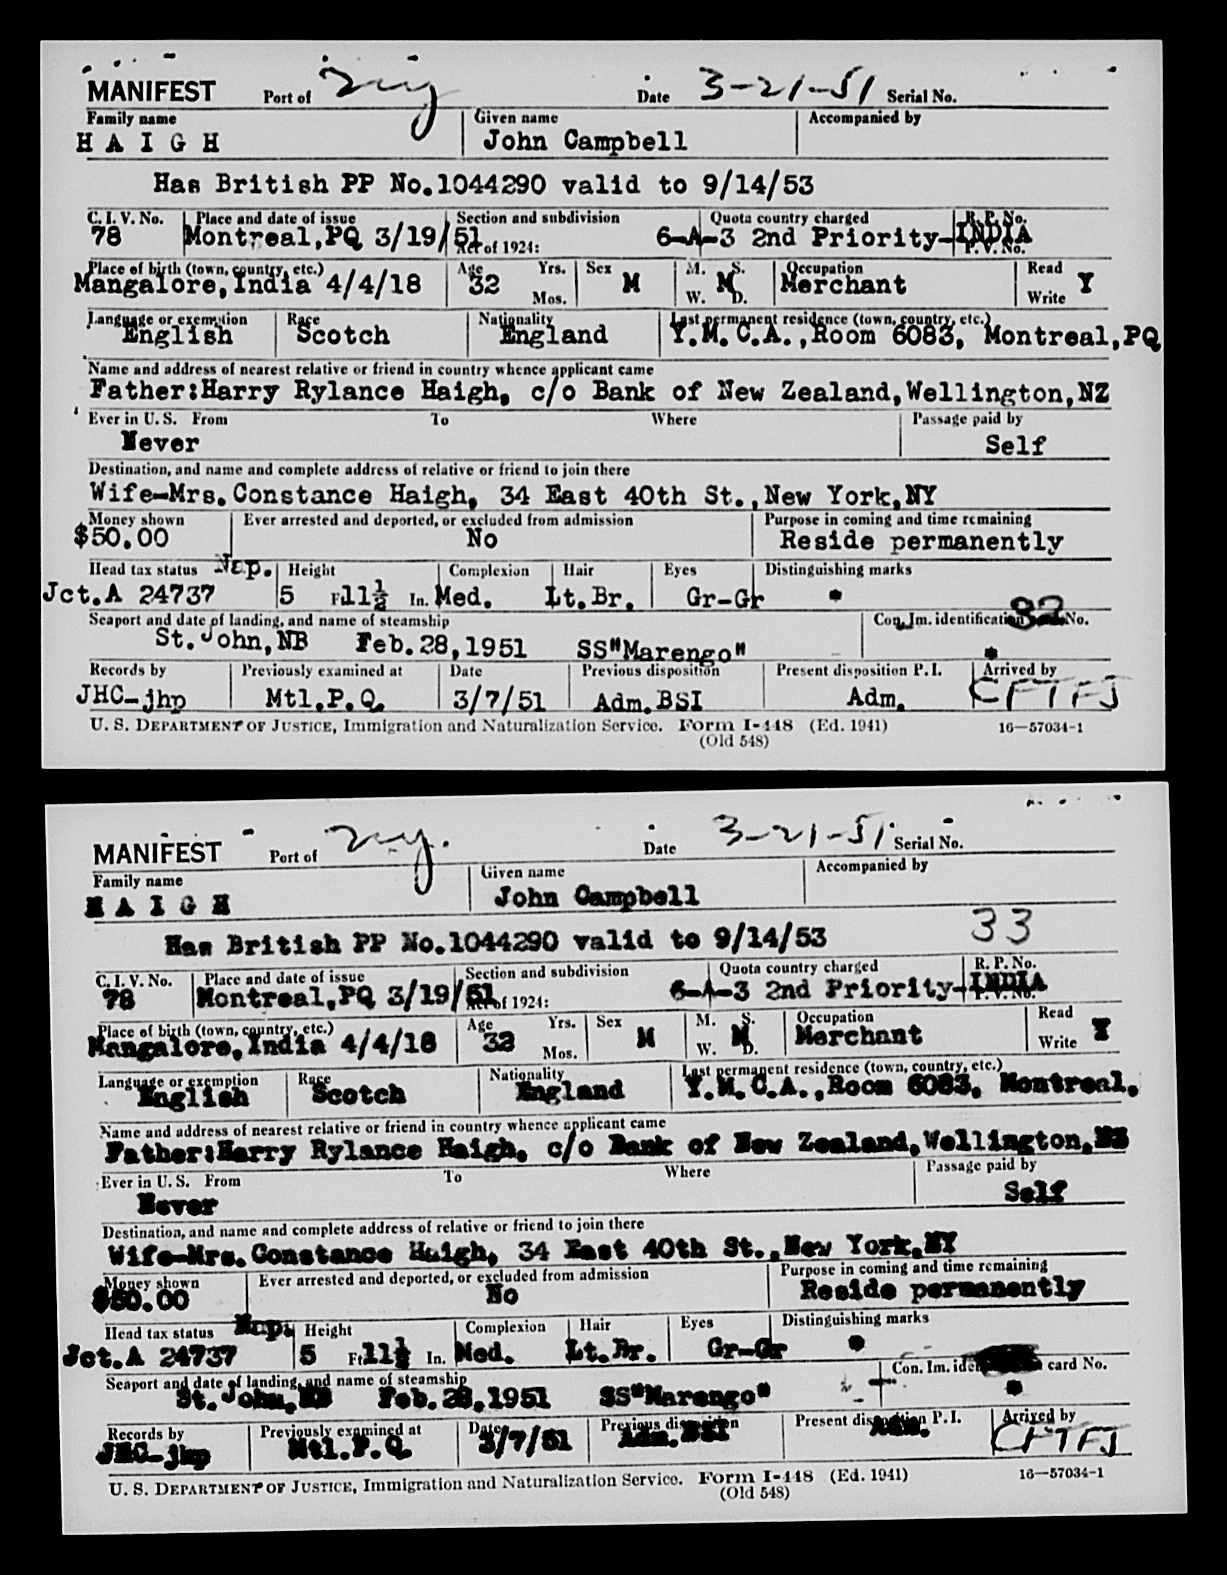 MANIFEST Port of Date 3-21-51 Serial No.
Family name Given name Accompanied by
H A I G H John Campbell
Has British PP No.1044290 valid to 9/14/53
C. I. V. No. Place and date of issue Section and subdivision Quota country charged R. P. No.
78 Montreal,PQ 3/19/51 Act of 1924: 6-A-3 2nd Priority-INDIA P. V. No.
Place of birth (town, country, etc.) Age Yrs. Sex M. S. Occupation Read
Mangalore, India 4/4/18 32 Mos. M W. M D. Merchant Write Y
Language or exemption Race Nationality Last permanent residence (town, country, etc.)
English Scotch England Y.M.C.A.,Room 6083, Montreal,PQ
Name and address of nearest relative or friend in country whence applicant came
Father:Harry Rylance Haigh, c/o Bank of New Zealand,Wellington,NZ
Ever in U. S. From To Where Passage paid by
Never Self
Destination, and name and complete address of relative or friend to join there
Wife-Mrs.Constance Haigh, 34 East 40th St.,New York,NY
Money shown Ever arrested and deported, or excluded from admission Purpose in coming and time remaining
$50.00 No Reside permanently
Head tax status Nap. Height Complexion Hair Eyes Distinguishing marks
Jct.A 24737 5 Ft. 11½ In. Med. Lt.Br. Gr-Gr *
Seaport and date of landing, and name of steamship Con. Im. identification No.
St.John,NB Feb.28,1951 SS"Marengo" *
Records by Previously examined at Date Previous disposition Present disposition P. I. Arrived by
JHC-jhp Mtl.P.Q. 3/7/51 Adm.BSI Adm. CFTFJ
U. S. DEPARTMENT OF JUSTICE, Immigration and Naturalization Service. Form I-448 (Ed. 1941) 16—57034-1
(Old 548)
MANIFEST Port of Date 3-21-51 Serial No.
Family name Given name Accompanied by
H A I G H John Campbell
Has British PP No.1044290 valid to 9/14/53 33
C. I. V. No. Place and date of issue Section and subdivision Quota country charged R. P. No.
78 Montreal,PQ 3/19/51 Act of 1924: 6-A-3 2nd Priority-INDIA P. V. No.
Place of birth (town, country, etc.) Age Yrs. Sex M. S. Occupation Read
Mangalore, India 4/4/18 32 Mos. M W. M D. Merchant Write Y
Language or exemption Race Nationality Last permanent residence (town, country, etc.)
English Scotch England Y.M.C.A.,Room 6083, Montreal,
Name and address of nearest relative or friend in country whence applicant came
Father:Harry Rylance Haigh, c/o Bank of New Zealand,Wellington,NZ
Ever in U. S. From To Where Passage paid by
Never Self
Destination, and name and complete address of relative or friend to join there
Wife-Mrs.Constance Haigh, 34 East 40th St.,New York,NY
Money shown Ever arrested and deported, or excluded from admission Purpose in coming and time remaining
$50.00 No Reside permanently
Head tax status Nap. Height Complexion Hair Eyes Distinguishing marks
Jct.A 24737 5 Ft. 11½ In. Med. Lt.Br. Gr-Gr *
Seaport and date of landing, and name of steamship Con. Im. card No.
St.John,NB Feb.28,1951 SS"Marengo" *
Records by Previously examined at Date Previous disposition Present disposition P. I. Arrived by
JHC-jhp Mtl.P.Q. 3/7/51 Adm.BSI Adm. CFTFJ
U. S. DEPARTMENT OF JUSTICE, Immigration and Naturalization Service. Form I-448 (Ed. 1941) 16—57034-1
(Old 548)